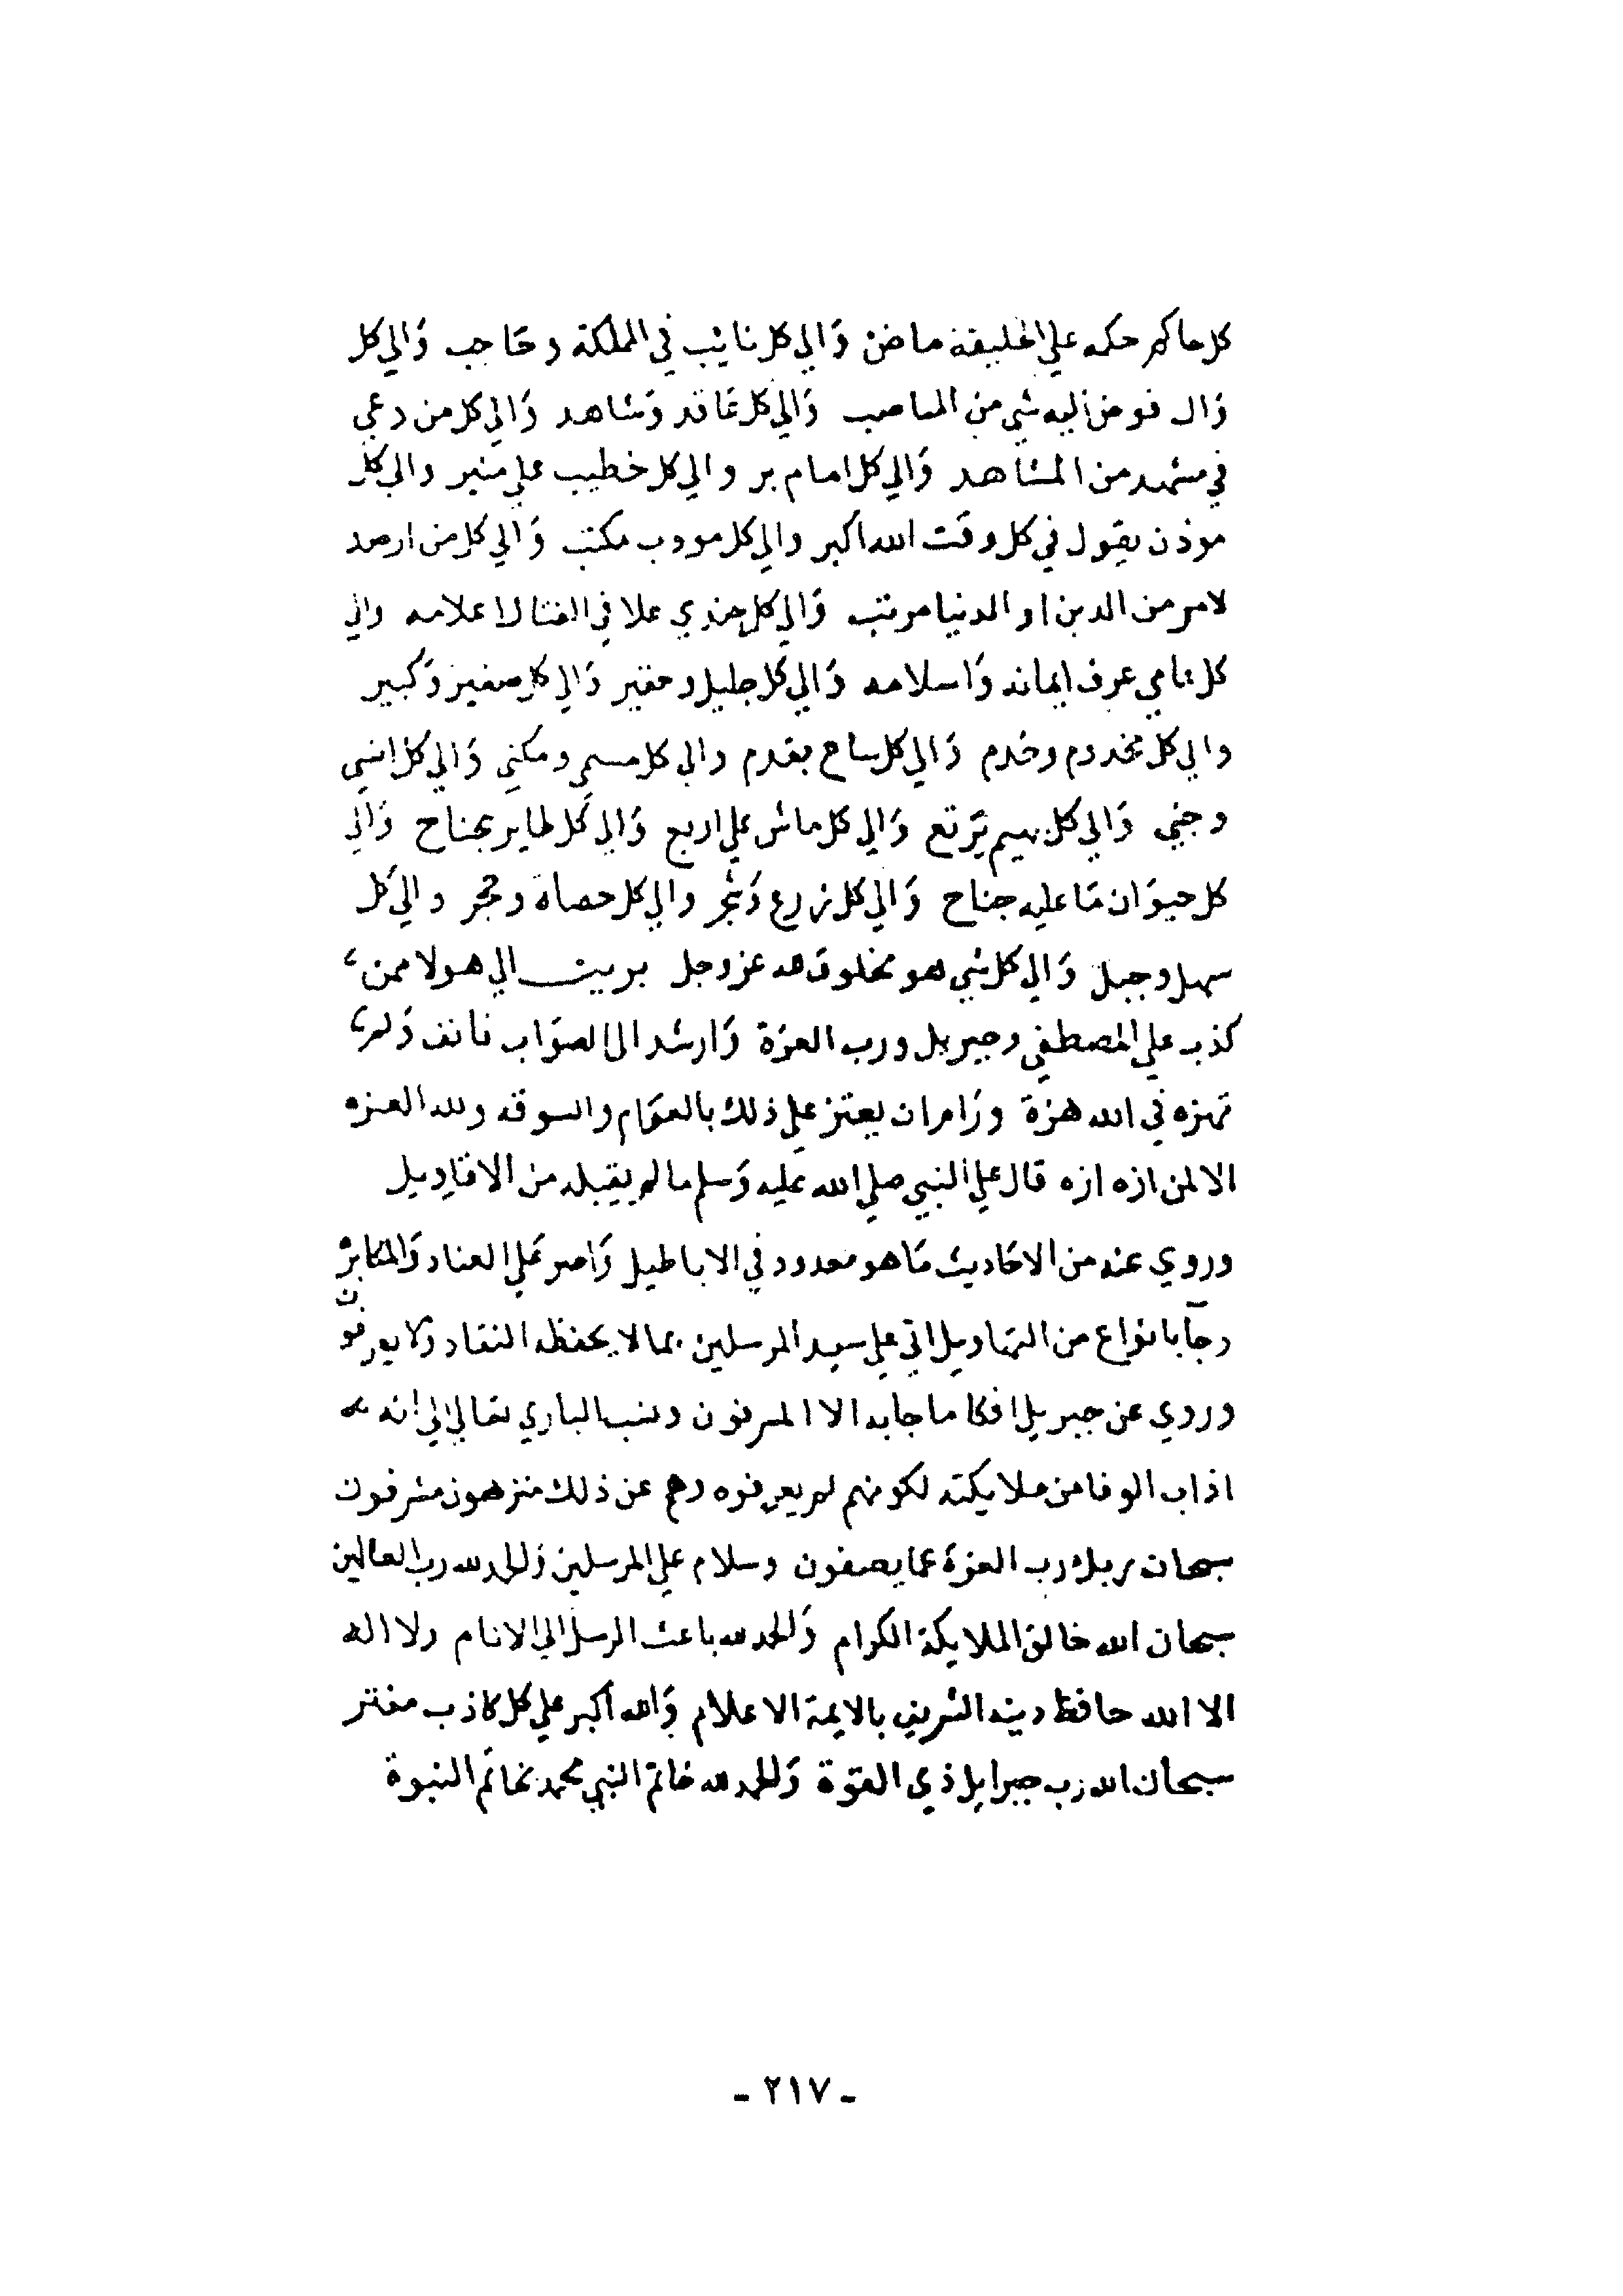 كل حاكم حكمه علي الخليقة ماض وَالي كل نايب في المملكة وحَاجب وَالي كل
وَال فوض اليه شي من المناصب وَالي كل عَاقد وَشاهد وَالي كل من دعي
في مشهد من المشاهد وَالي كل امام بر والي كل خطيب علي منبر والي كل
موذن يقول في كل وقت الله اكبر والي كل مودب مكتب وَالي كل من ارصد
لامر من الدين او الدنيا مرتب وَالي كل جندي علا في القتال اعلامه والي
كل عامي عرف ايمانه وَاسلامه وَالي كل جليل وحقير وَالي كل صغير وَكبير
والي كل مخدوم وخدم وَالي كل ساع بقدم والي كل مسمي ومكني وَالي كل انسي
وجني وَالي كل بهيم يَرتع وَالي كل ماش علي اربع وَالي كل طاير بجناح وَالي
كل حيوَان مَا عليه جناح وَالي كل زرع وَشجر والي كل حصاة وحجر والي كل
سهل وجبل وَالي كل شي هو مخلوق لله عز وجل بريت الي هولا ممن
كذب علي المصطفي وجبريل ورب العزة وَارشد الي الصوَاب فانف وَلم
تهزه في الله هزة ورَام ان يعتز علي ذلك بالعوَام والسوقه ولله العزه
الا لمن ازه ازه قال علي النبي صلي الله عليه وَسلم ما لم يقبله من الاقاويل
وروي عنه من الاحَاديث مَا هو معدود في الاباطيل وَاصر عَلي العناد وَالمكابره
وجآ بانواع من التهَاويل اتي علي سيد المرسلين بما لا يحفظه النقاد وَلا يعرفون
وروي عن جبريل افكا ما جا به الا المسرفون ونسب الباري تعَالي الي انه
اذاب الوفا من ملايكته لكونهم لم يعرفوه وهم عن ذلك منزهون مشرفون
سبحان ربك رب العزة عما يصفون وسلام علي المرسلين وَالحمد لله رب العالمين
سبحان الله خالق الملايكة الكرام وَالحمد لله باعث الرسل الي الانام ولا اله
الا الله حافظ دينه الشريف بالايمة الاعلام وَالله اكبر علي كل كاذب مفتر
سبحان الله رب جبرايل ذي القوة وَالحمد لله خاتم النبي محمد بخاتم النبوة
- ٢١٧ -